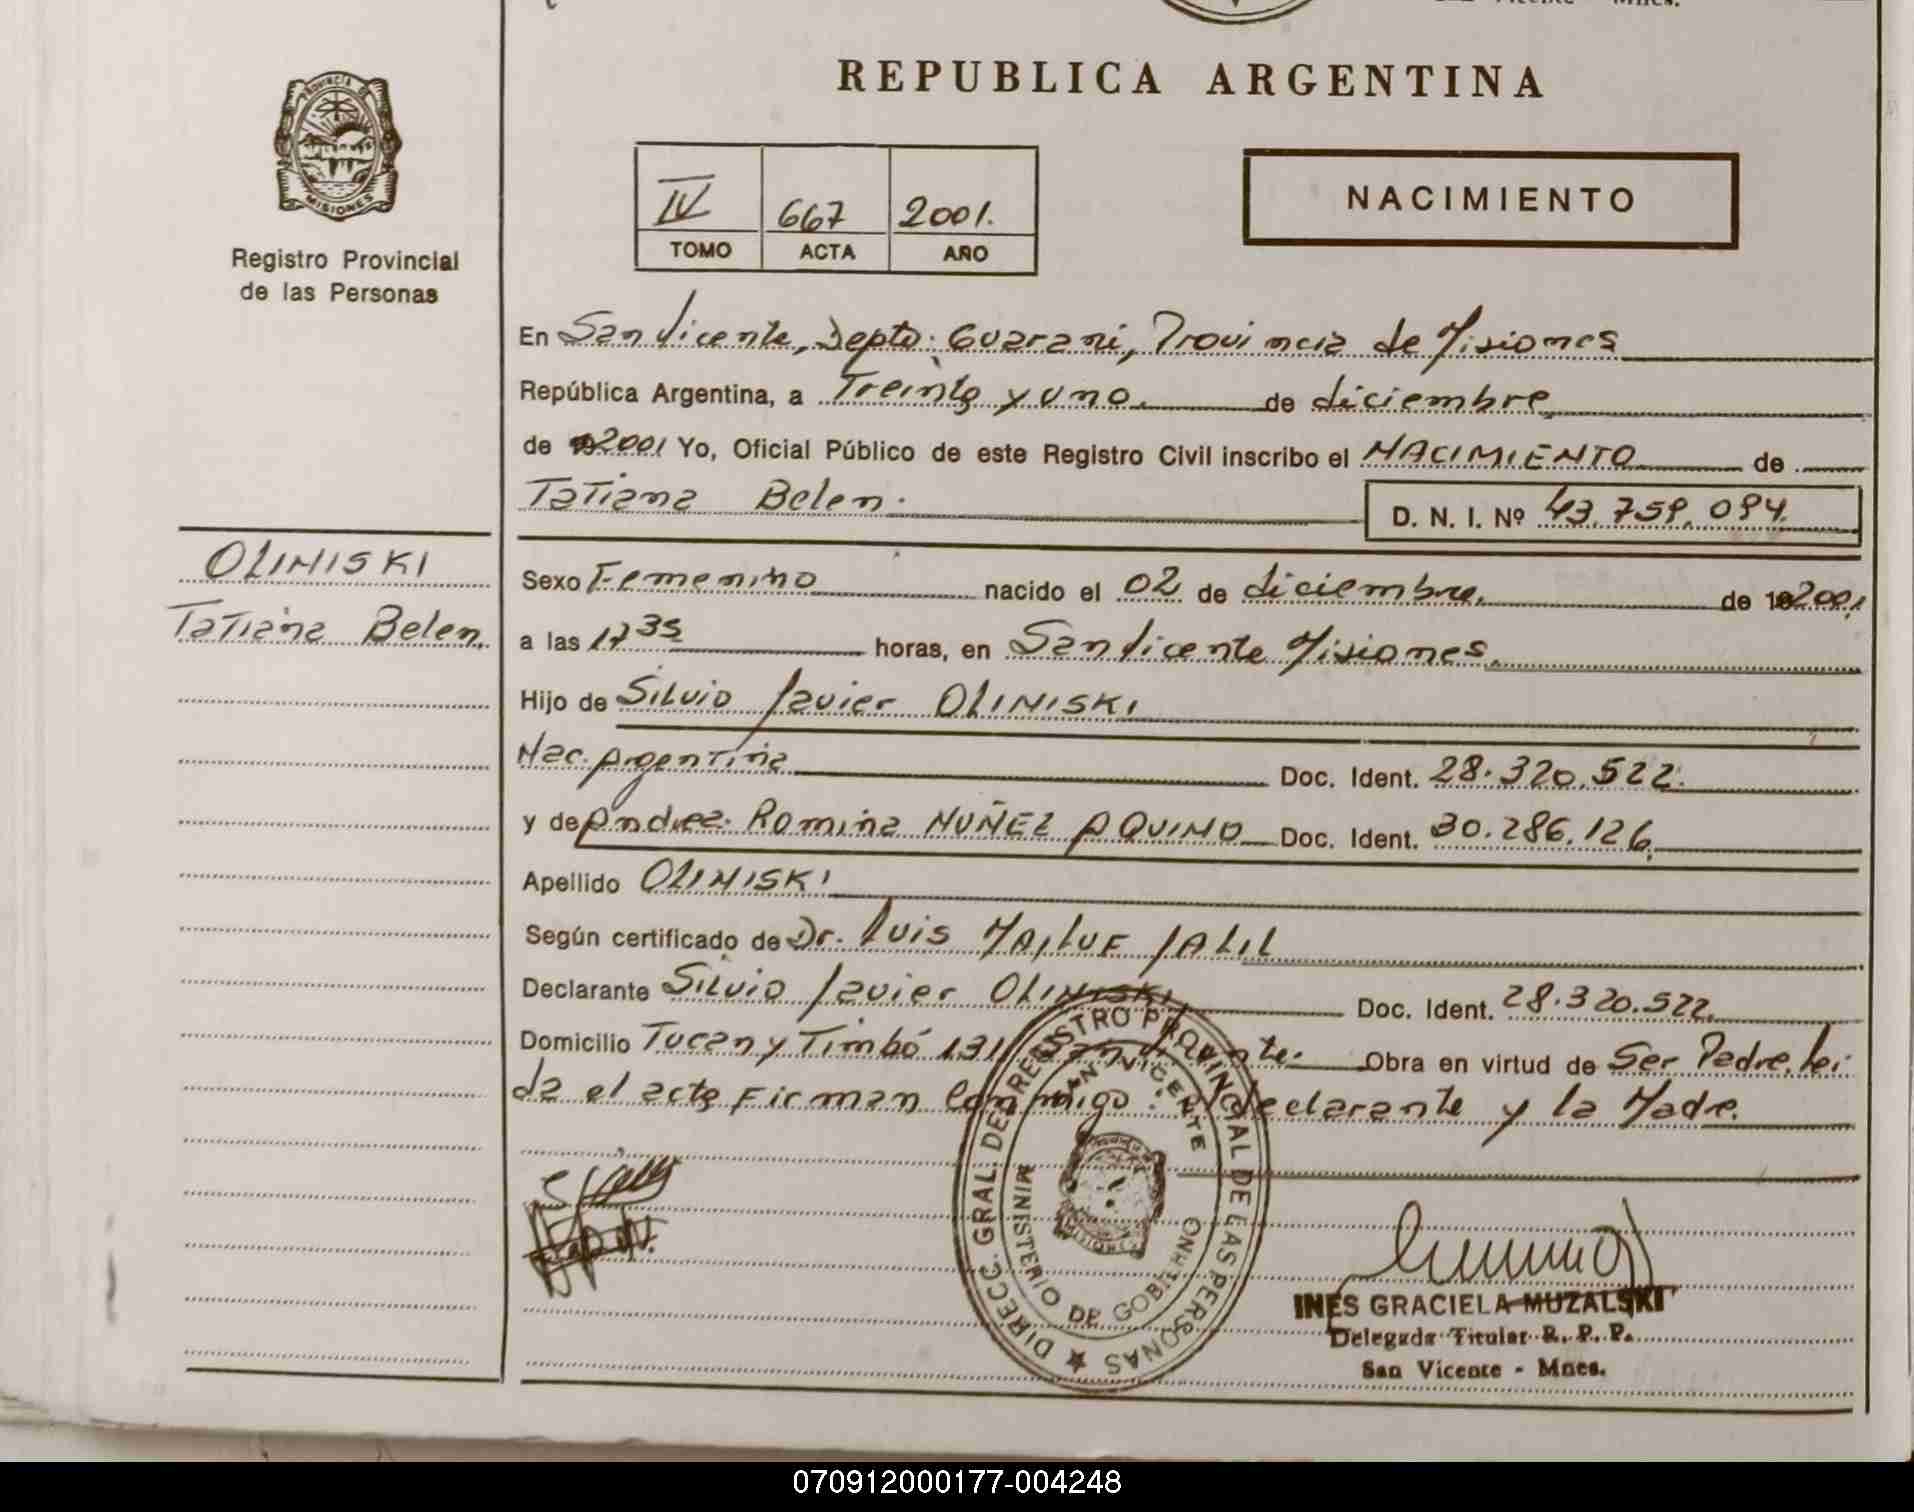 REPUBLICA ARGENTINA
PROVINCIA DE
MISIONES
Registro Provincial
de las Personas
IV 667 2001.
TOMO ACTA AÑO
NACIMIENTO
En San Vicente, Depto: Guarani, Provincia de Misiones
República Argentina, a Treinta y uno. de diciembre,
de 2001 Yo, Oficial Público de este Registro Civil inscribo el NACIMIENTO de
Tatiana Belen. D. N. I. Nº 43.759.094.
OLINISKI
Tatiana Belen.
Sexo Femenino nacido el 02 de diciembre, de 2001,
a las 17 35 horas, en San Vicente Misiones.
Hijo de Silvio Javier OLINISKI
Nac. Argentina Doc. Ident. 28.320.522.
y de Andrea Romina NUÑEZ AQUINO Doc. Ident. 30.286.126,
Apellido OLINISKI
Según certificado de Dr. Luis JALIL
Declarante Silvio Javier OLINISKI, Doc. Ident. 28.320.522.
Domicilio Tucan y Timbó 131 San Vicente. Obra en virtud de Ser Padre. Lei
da el acta Firman Conmigo: el declarante y la Madre.
DIRECC. GRAL. DEL REGISTRO PROVINCIAL DE LAS PERSONAS
SAN VICENTE
MINISTERIO DE GOBIERNO
MISIONES
INES GRACIELA MUZALSKI
Delegada Titular R. P. P.
San Vicente - Mnes.
070912000177-004248